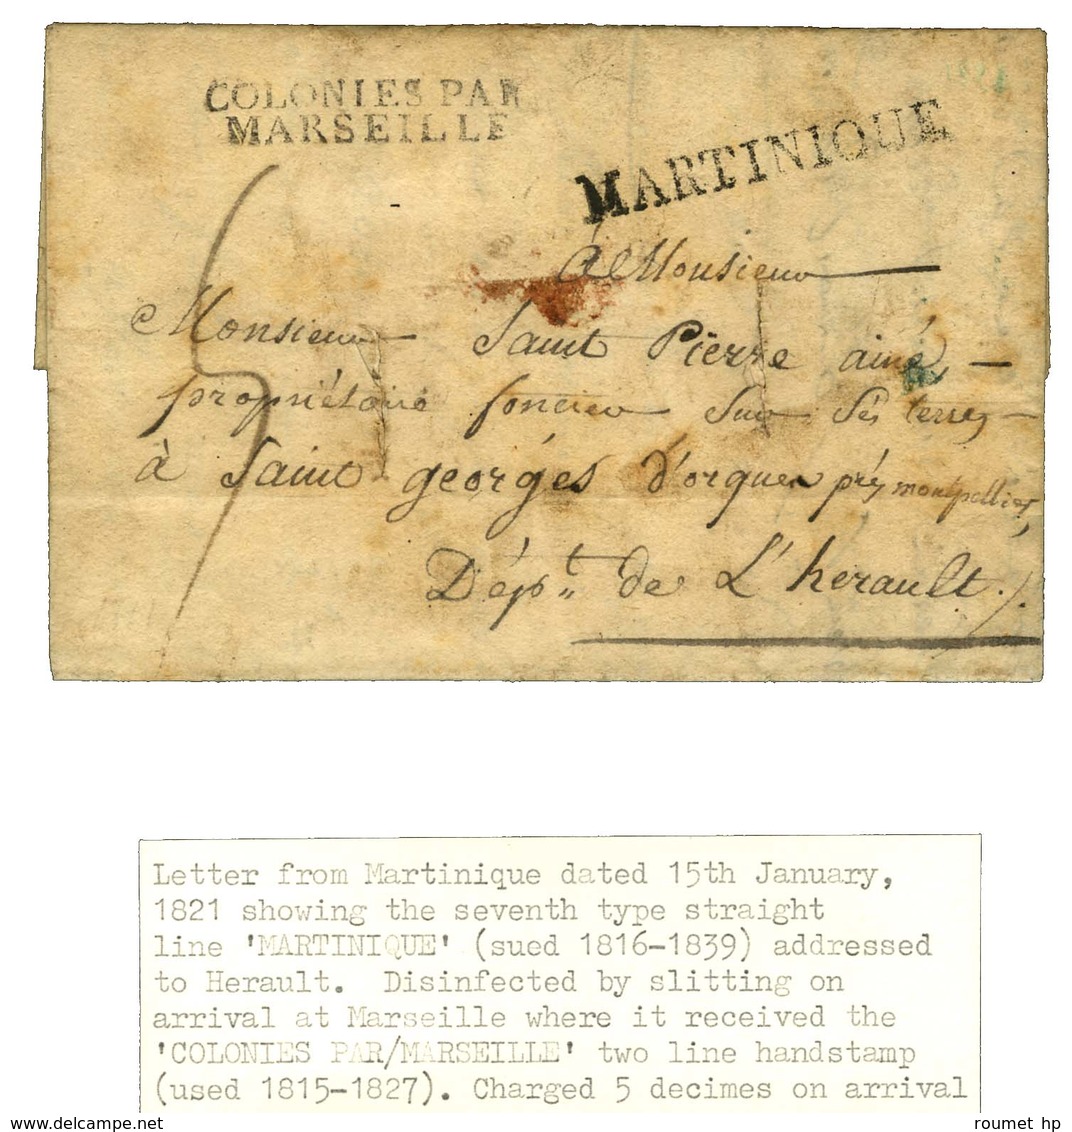 COLONIES PAR
MARSEILLE
MARTINIQUE
à Monsieur
Monsieur Saint Pierre ainé
propriétaire foncier sur ses terres
à Saint georgés d'orques prés montpellier,
Dép.t de L'herault./.
Letter from Martinique dated 15th January,
1821 showing the seventh type straight
line 'MARTINIQUE' (sued 1816-1839) addressed
to Herault. Disinfected by slitting on
arrival at Marseille where it received the
'COLONIES PAR/MARSEILLE' two line handstamp
(used 1815-1827). Charged 5 decimes on arrival
www.delcampe.net
roumet hp